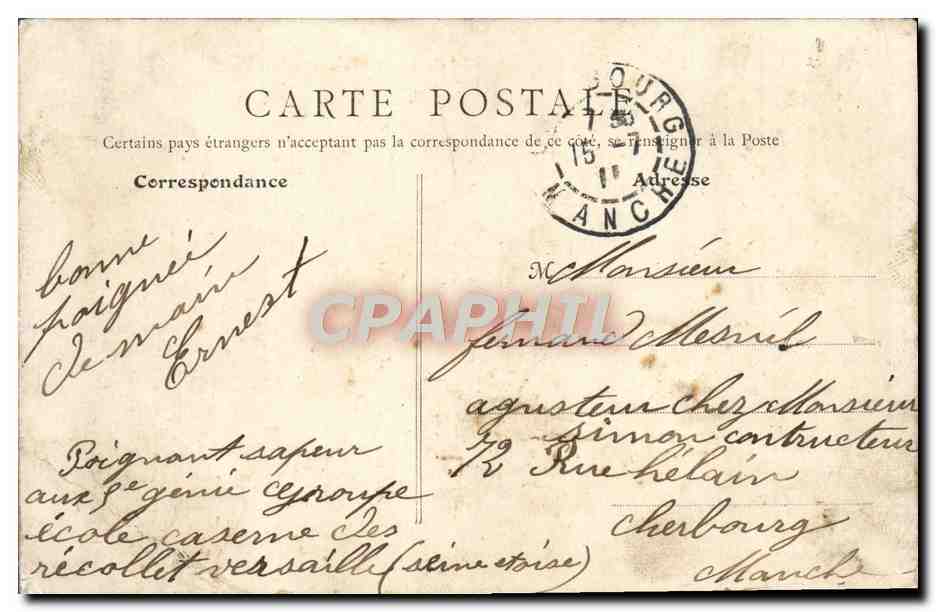 CARTE POSTALE
Certains pays étrangers n'acceptant pas la correspondance de ce côté, se renseigner à la Poste
Correspondance
Adresse
BOURG
7 30
15 -7
11
MANCHE
bonne
poignée
de main
Ernest
Poignant sapeur
aux 5e génie groupe
école caserne des
récollet versaille (seine et oise)
M Monsieur
fernand Mesnil
agusteur chez Monsieur
simon contructeur
72 Rue hélain
cherbourg
Manche
CPAPHIL